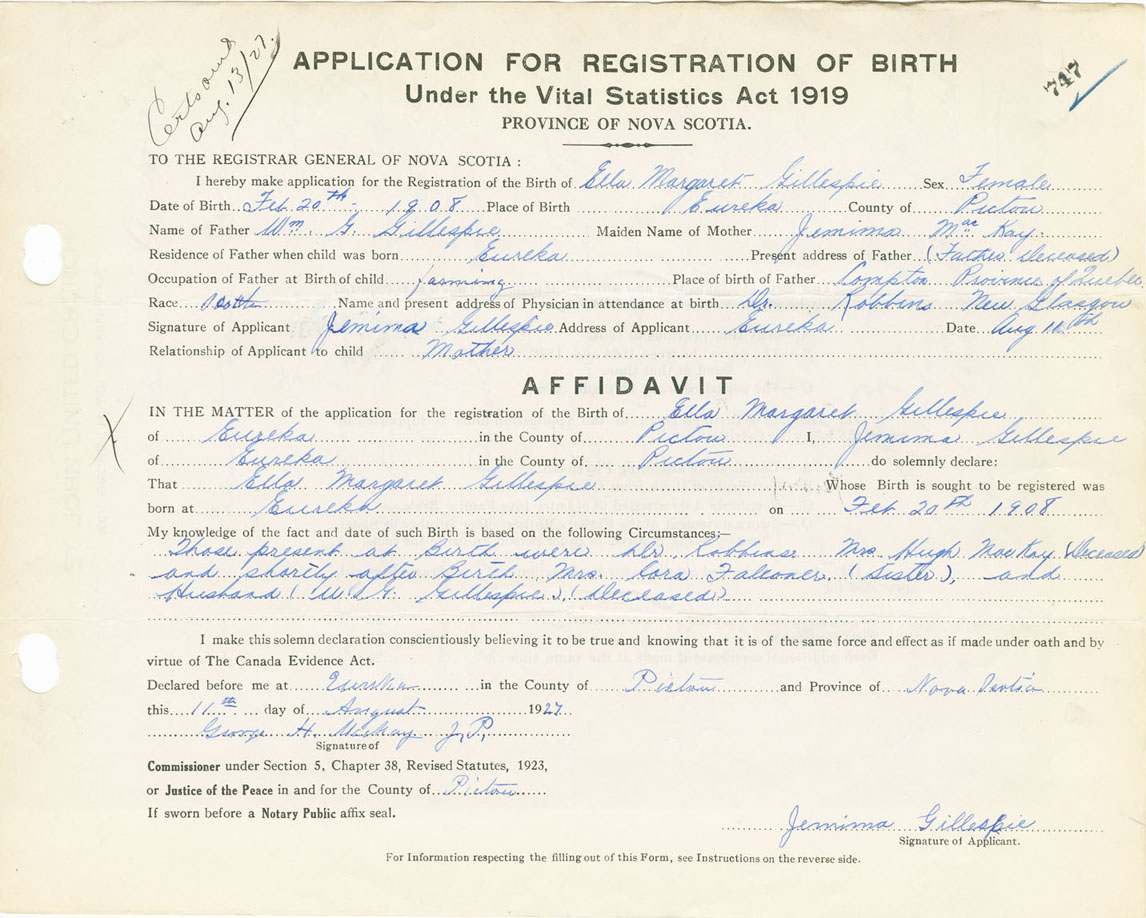 Certs and
Aug. 13/27.
747
APPLICATION FOR REGISTRATION OF BIRTH
Under the Vital Statistics Act 1919
PROVINCE OF NOVA SCOTIA.
TO THE REGISTRAR GENERAL OF NOVA SCOTIA :
I hereby make application for the Registration of the Birth of Ella Margaret Gillespie Sex Female
Date of Birth Feb 20th - 1908 Place of Birth Eureka County of Pictou
Name of Father Wm. G. Gillespie Maiden Name of Mother Jemima MacKay.
Residence of Father when child was born Eureka Present address of Father (Father deceased)
Occupation of Father at Birth of child farming Place of birth of Father Compton Province of Quebec
Race Name and present address of Physician in attendance at birth Dr. Robbins New Glasgow
Signature of Applicant Jemima Gillespie Address of Applicant Eureka Date Aug
Relationship of Applicant to child Mother
AFFIDAVIT
IN THE MATTER of the application for the registration of the Birth of Ella Margaret Gillespie
of Eureka in the County of Pictou I, Jemima Gillespie
of Eureka in the County of Pictou do solemnly declare:
That Ella Margaret Gillespie Whose Birth is sought to be registered was
born at Eureka on Feb 20th 1908
My knowledge of the fact and date of such Birth is based on the following Circumstances;—
Those present at Birth were Dr. Robbins Mrs. Hugh MacKay (Deceased)
and shortly after Birth Mrs. Cora Falconer, (Sister), and
Husband (W. G. Gillespie), (Deceased)
I make this solemn declaration conscientiously believing it to be true and knowing that it is of the same force and effect as if made under oath and by
virtue of The Canada Evidence Act.
Declared before me at Eureka in the County of Pictou and Province of Nova Scotia
this 11th day of August 1927
George H. McKay J.P.
Signature of
Commissioner under Section 5, Chapter 38, Revised Statutes, 1923,
or Justice of the Peace in and for the County of Pictou
If sworn before a Notary Public affix seal.
Jemima Gillespie
Signature of Applicant.
For Information respecting the filling out of this Form, see Instructions on the reverse side.